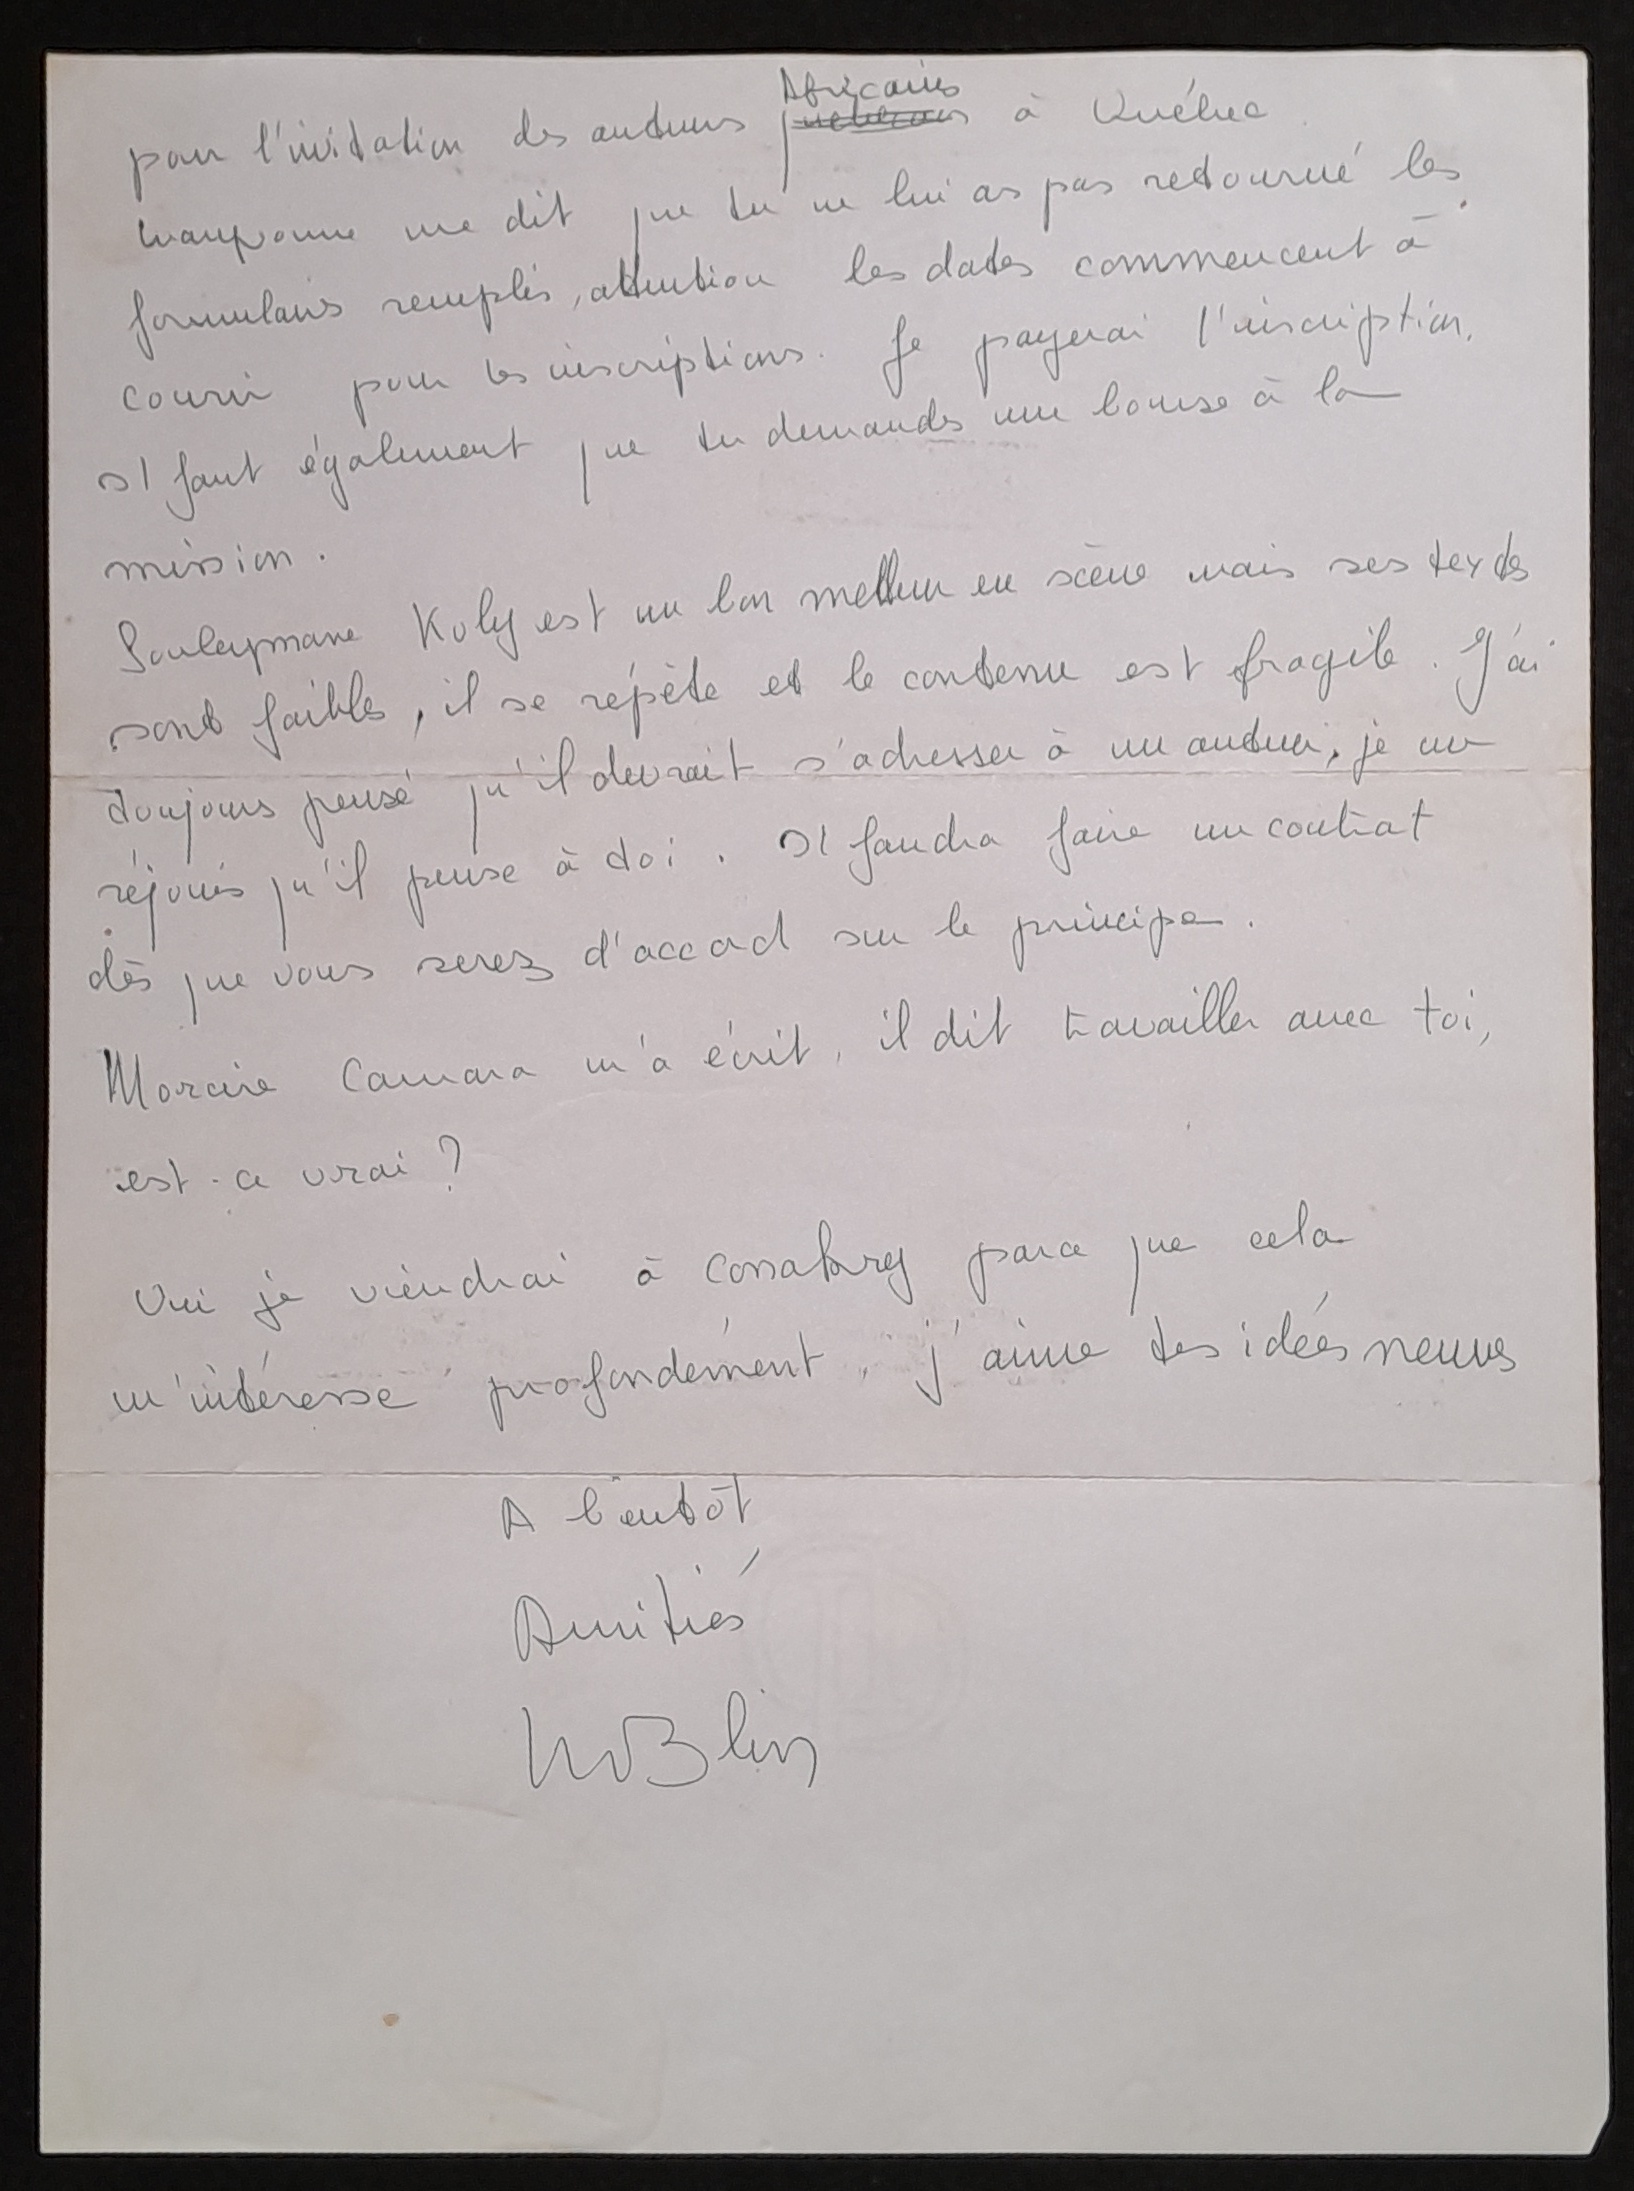 pour l'invitation des auteurs Africains à Québec.
me dit que tu ne lui as pas retourné les
formulaires remplis, attention les dates commencent à
courir pour les inscriptions. Je payerai l'inscription.
Il faut également que tu demandes une bourse à la
mission.
Souleymane Koly est un bon metteur en scène mais ses textes
sont faibles, il se répète et le contenu est fragile. J'ai
toujours pensé qu'il devrait s'adresser à un auteur, je me
réjouis qu'il pense à toi. Il faudra faire un contrat
dès que vous serez d'accord sur le principe.
Morcire Camara m'a écrit, il dit travailler avec toi,
est-ce vrai ?
Oui je viendrai à Conakry parce que cela
m'intéresse profondément, j'aime tes idées neuves
A bientôt
Amitiés
Blin